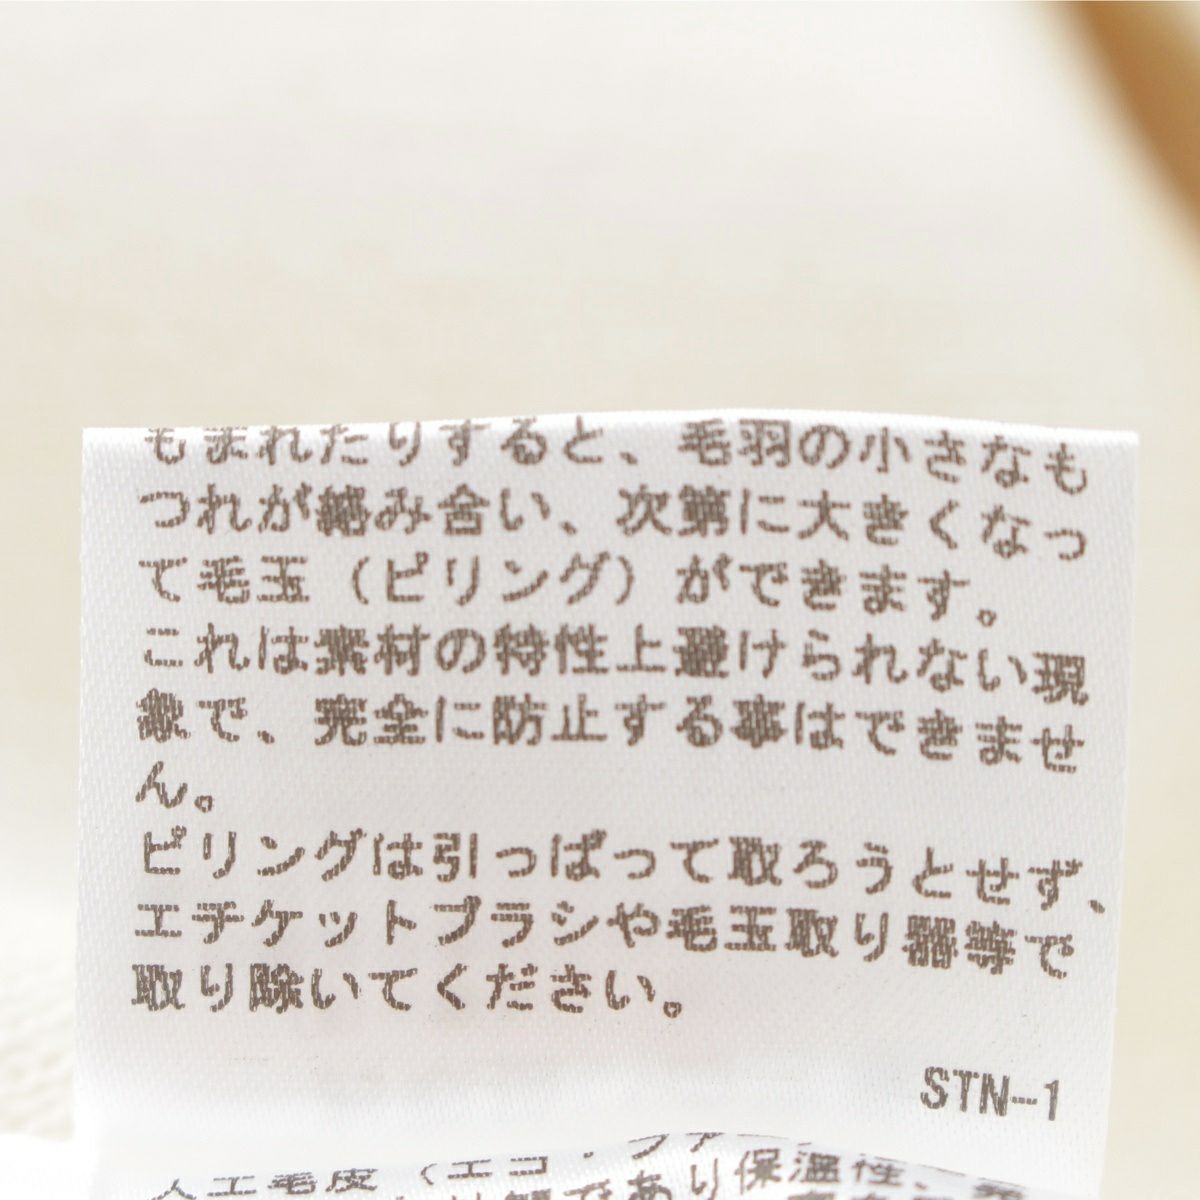 もまれたりすると、毛羽の小さなも
つれが絡み合い、次第に大きくなっ
て毛玉（ピリング）ができます。
これは素材の特性上避けられない現
象で、完全に防止する事はできませ
ん。
ピリングは引っぱって取ろうとせず、
エチケットブラシや毛玉取り器等で
取り除いてください。
STN-1
人工毛皮（エコファー
であり保温性、